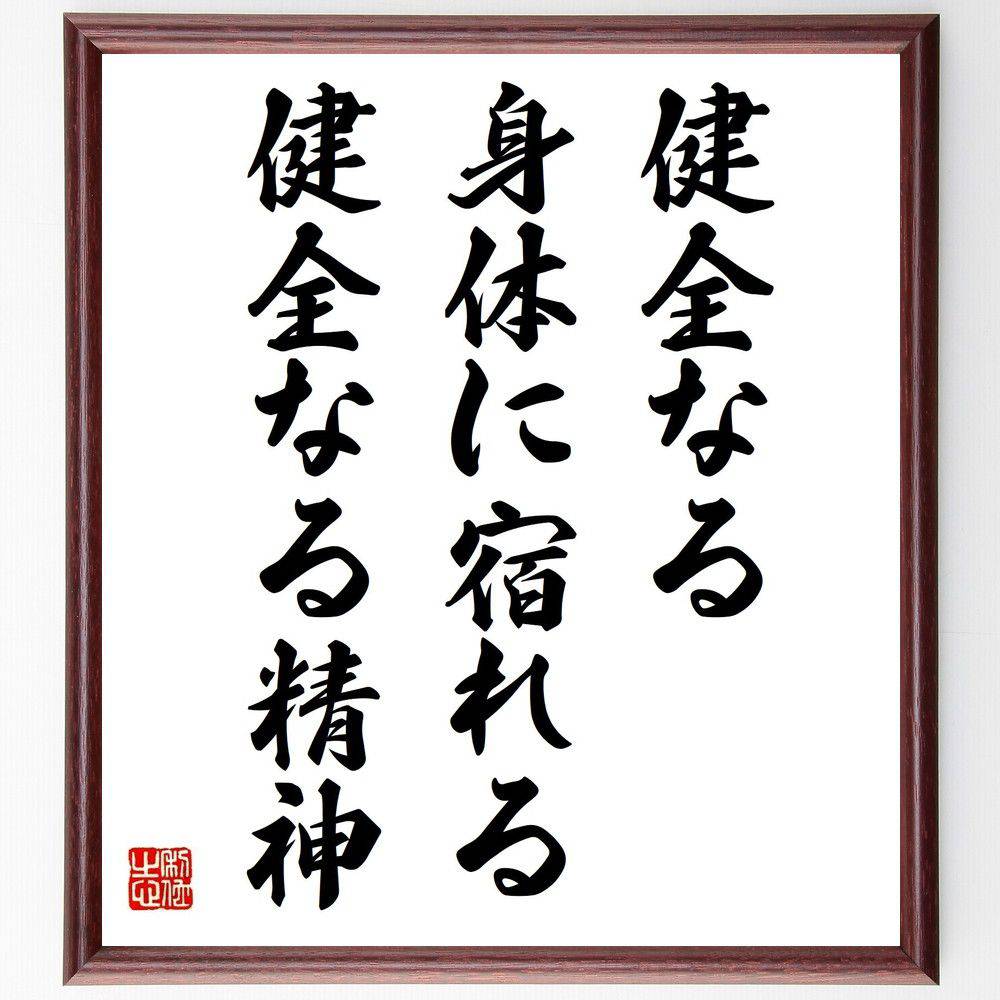 健全なる
身体に宿れる
健全なる精神